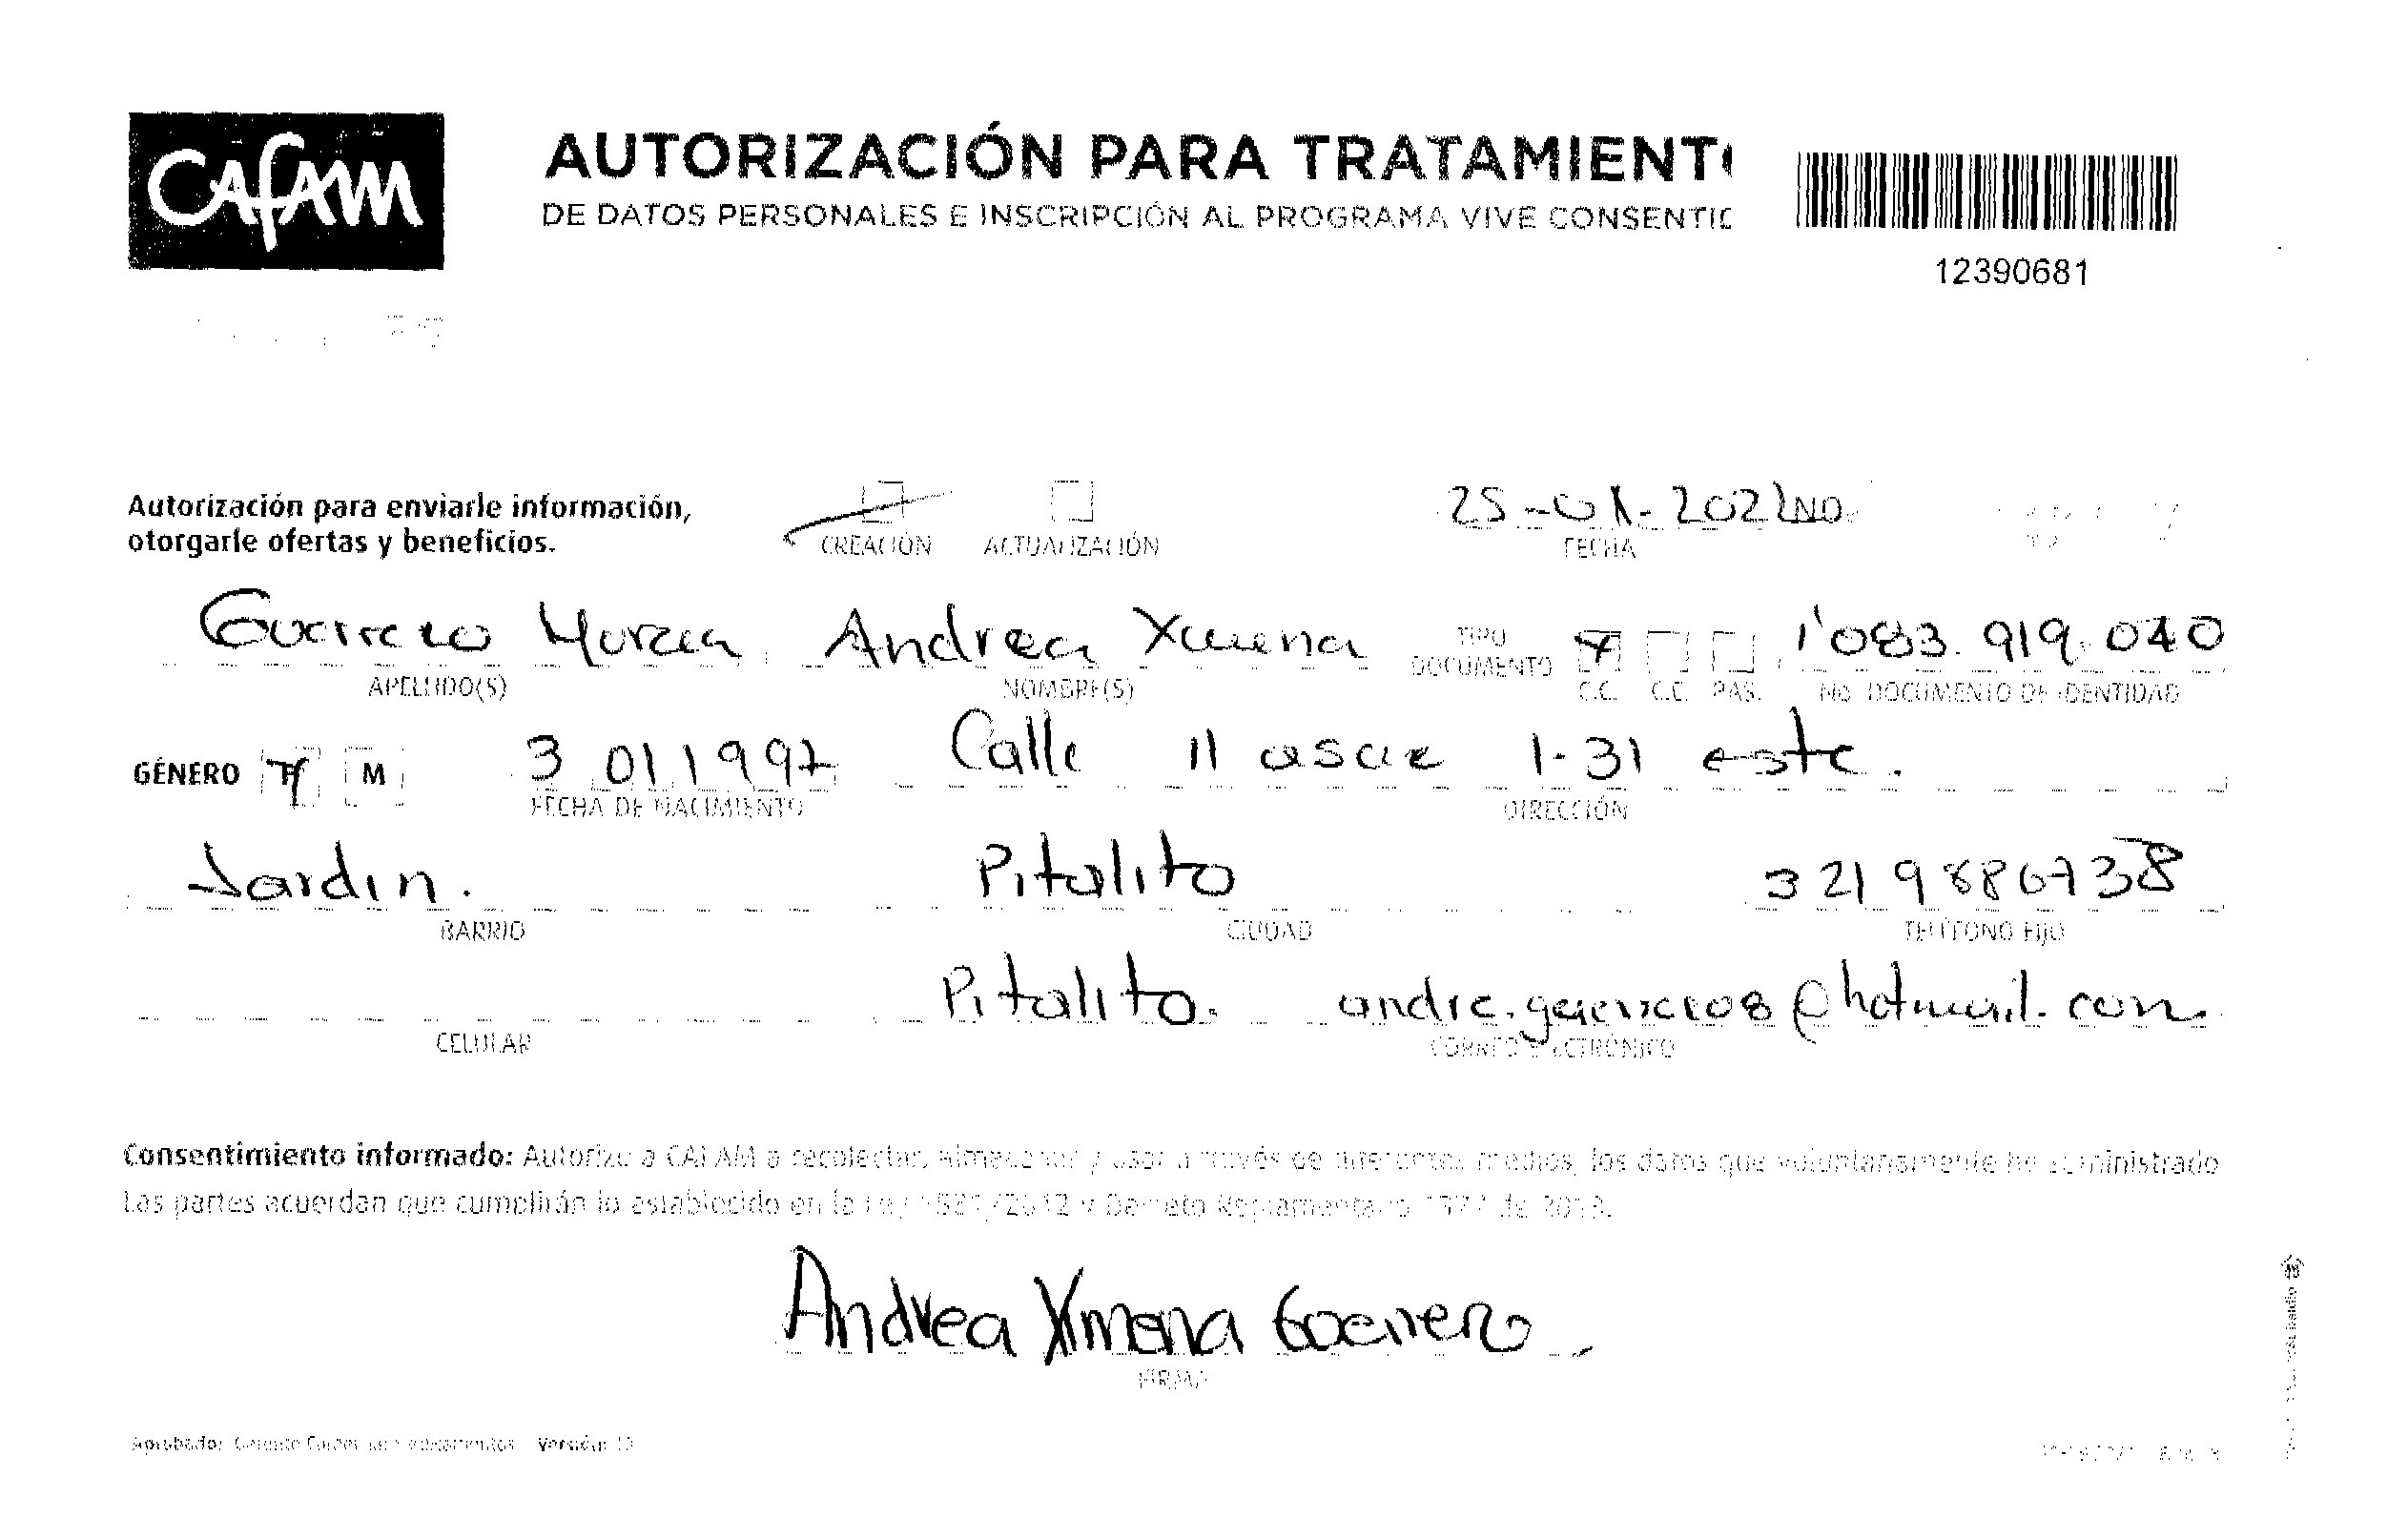 CAFAM
AUTORIZACIÓN PARA TRATAMIENT
DE DATOS PERSONALES E INSCRIPCIÓN AL PROGRAMA VIVE CONSENTID
12390681
Autorización para enviarle información,
otorgarle ofertas y beneficios.
CREACIÓN ACTUALIZACIÓN
FECHA
Guerrero Andrea Ximena TIPO DOCUMENTO 1'083.919.040
APELLIDO(S) NOMBRE(S) C.C. C.E. PAS. No. DOCUMENTO DE IDENTIDAD
GÉNERO F M 3 01 1997 Calle 11 1-31 este.
FECHA DE NACIMIENTO DIRECCIÓN
Jardin. Pitalito 3219886738
BARRIO CIUDAD TELÉFONO FIJO
Pitalito.
CELULAR CORREO ELECTRÓNICO
Consentimiento informado: Autorizo a CAFAM a recolectar, almacenar y usar a través de diferentes medios, los datos que voluntariamente he suministrado
Las partes acuerdan que cumplirán lo establecido en la Ley 1581/2012 y Decreto Reglamentario 1377 de 2013.
Andrea Ximena Guerrero
FIRMA
Aprobado: Gerente Versión: